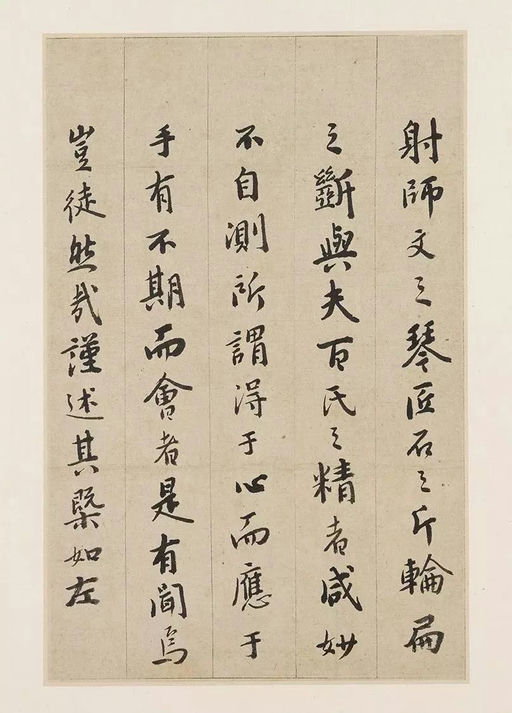 射師文之琴匠石之斤輪扁
之斲與夫百氏之精者咸妙
不自測所謂得于心而應于
手有不期而會者是有間焉
豈徒然哉謹述其槩如左